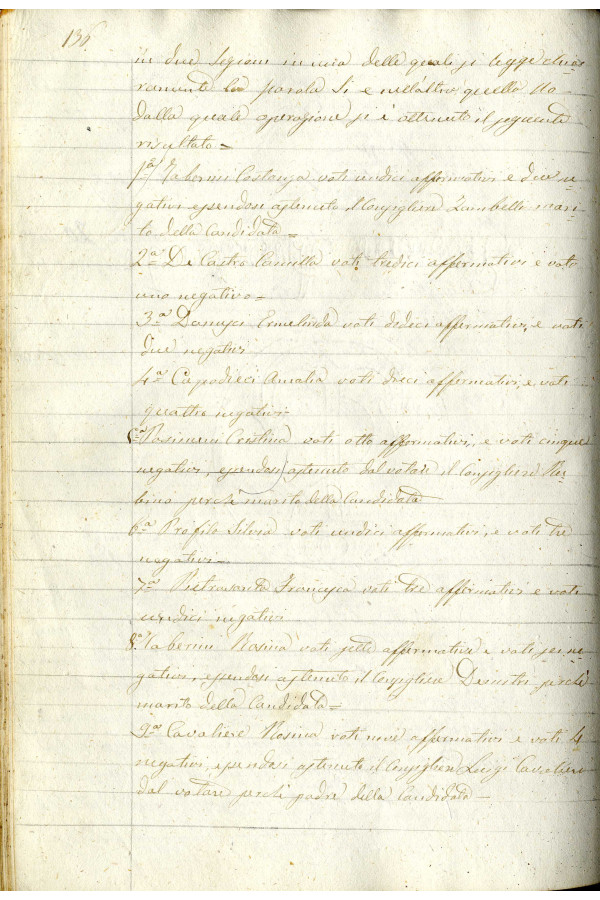 136
in due legioni in una delle quali si legge chia=
ramente la parola Si e nell'altro quello No
dalla quale operazione si è ottenuto il seguente
risultato=
1ª Taberini Costanza voti undici affermativi e due ne=
gativi essendosi astenuto il Consigliere Zambelli mari=
to della Candidata=
2ª De Castro Camilla voti tredici affermativi e voto
uno negativo=
3ª Ermelinda voti dodici affermativi, e voti
due negativi
4ª Capodieci Amalia voti dieci affermativi, e voti
quattro negativi=
5ª Cristina voti otto affermativi, e voti cinque
negativi, essendosi astenuto dal votare il Consigliere Ru=
bino perché marito della Candidata
6ª Profilo Silvia voti undici affermativi, e voti tre
negativi=
7ª Pietrasanta Francesca voti tre affermativi e voti
undici negativi
8ª Taberini Rosina voti sette affermativi e voti sei ne=
gativi, essendosi astenuto il Consigliere Demitri perché
marito della Candidata=
9ª Cavaliere Rosina voti nove affermativi e voti 4
negativi, essendosi astenuto il Consigliere Luigi Cavaliere
dal votare perché padre della Candidata=